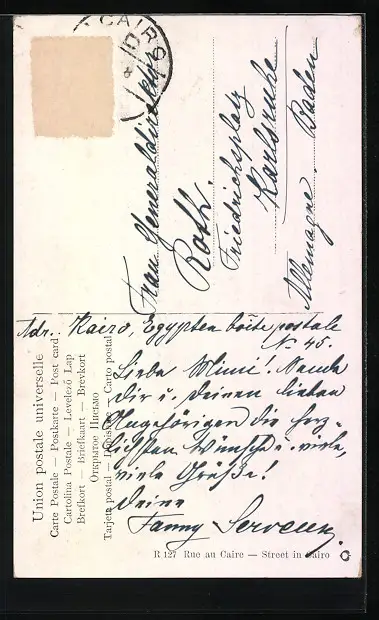 CAIRO
Frau Generaldirektor
Roth.
Friedrichsplatz
Karlsruhe
Allemagne. Baden
Adr. Kairo, Egypten boîte postale
N. 45.
Liebe Mimi! Sende
Dir u. Deinen lieben
Angehörigen die herz-
lichsten Wünsche u. viele,
viele Grüße!
Deine
Fanny
Union postale universelle
Carte Postale — Postkarte — Post card
Cartolina Postale — Levelező Lap
Brefkort — Briefkaart — Brevkort
Открытое Письмо
Tarjeta postal — — Carto postal
R. 127 Rue au Caire — Street in Cairo